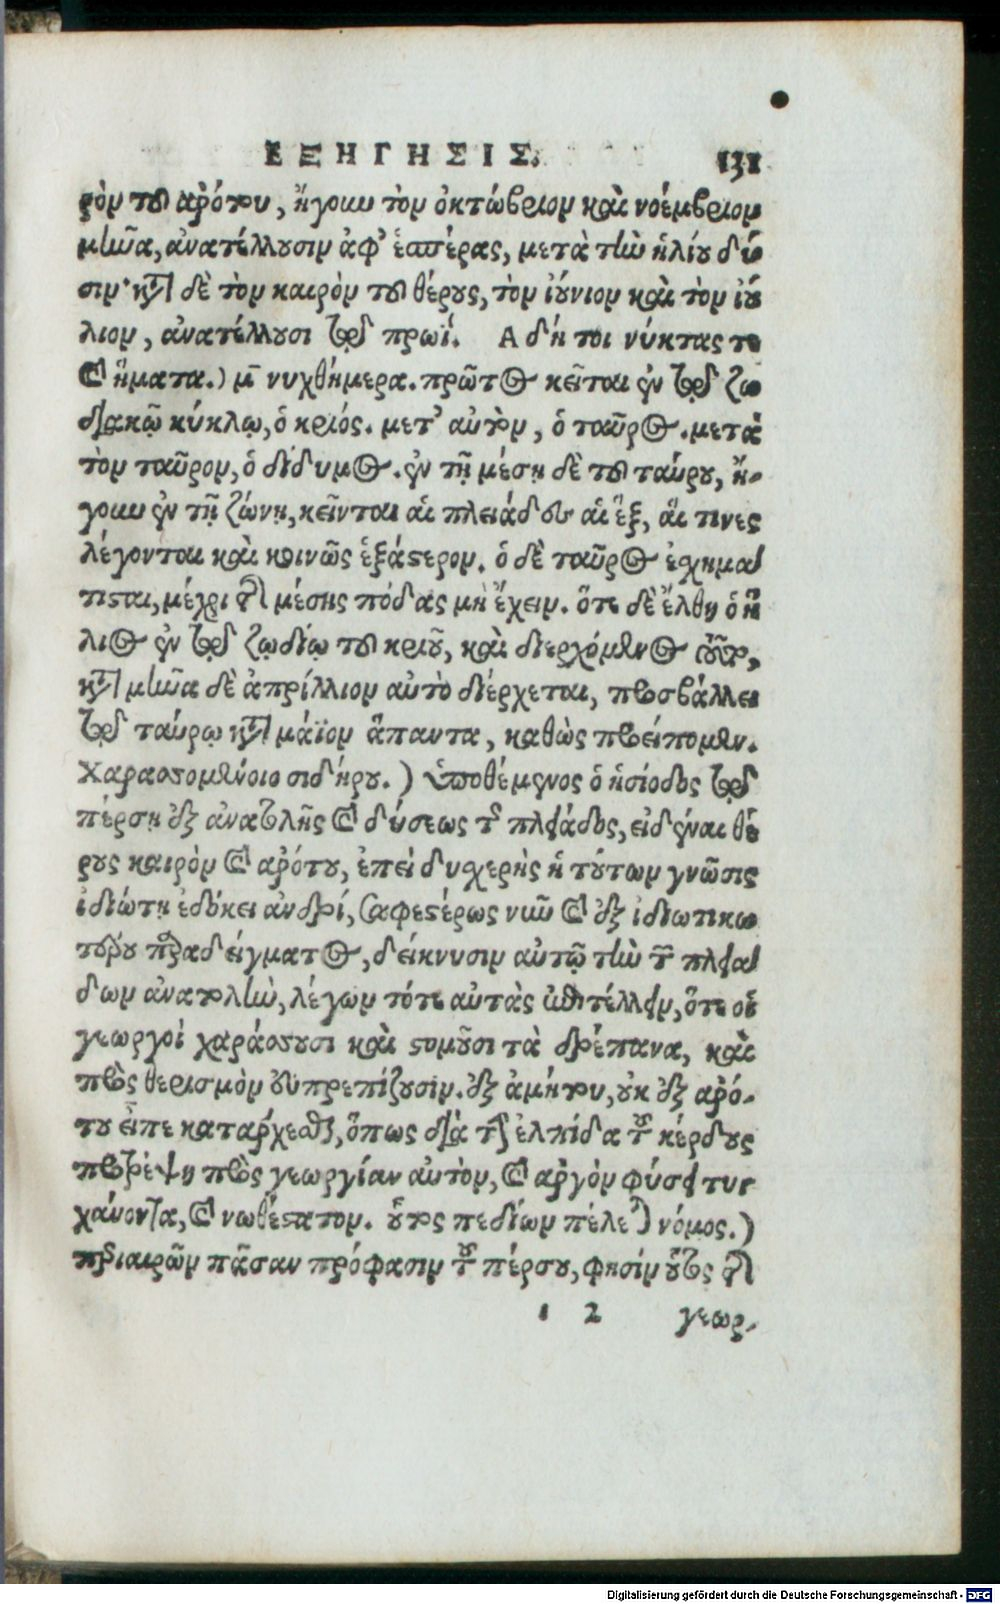 ΕΞΗΓΗΣΙΣ. 131
ρὸν τοῦ ἀρότου, ἤγουν τὸν ὀκτώβριον καὶ νοέμβριον
μῆνα, ἀνατέλλουσιν ἀφ' ἑσπέρας, μετὰ τὴν ἡλίου δύ
σιν· κατὰ δὲ τὸν καιρὸν τοῦ θέρους, τὸν ἰούνιον καὶ τὸν ἰού
λιον, ἀνατέλλουσι τῷ πρωΐ. Α δή τοι νύκτας τε
καὶ ἤματα.) μ̄ νυχθήμερα. πρῶτος κεῖται ἐν τῷ ζω
διακῷ κύκλῳ, ὁ κριός. μετ' αὐτὸν, ὁ ταῦρος. μετὰ
τὸν ταῦρον, ὁ δίδυμος. ἐν τῇ μέσῃ δὲ τοῦ ταύρου, ἤ-
γουν ἐν τῇ ζώνῃ, κεῖνται αἱ πλειάδες αἱ ἓξ, αἵ τινες
λέγονται καὶ κοινῶς ἑξάστερον. ὁ δὲ ταῦρος ἐσχημά
τισται, μέχρι τῆς μέσης πόδας μὴ ἔχειν. ὅτε δὲ ἔλθῃ ὁ ἥ
λιος ἐν τῷ ζωδίῳ τοῦ κριοῦ, καὶ διερχόμενος τοῦτο,
κατὰ μῆνα δὲ ἀπρίλλιον αὐτὸ διέρχεται, προσβάλλει
τῷ ταύρῳ κατὰ μάϊον ἅπαντα, καθὼς προείπομεν.
Χαρασσομένοιο σιδήρου.) Ὑποθέμενος ὁ ἡσίοδος τῷ
πέρσῃ ἐξ ἀνατολῆς καὶ δύσεως τῆς πλειάδος, εἰδέναι θέ
ρους καιρὸν καὶ ἀρότου, ἐπεὶ δυσχερὴς ἡ τούτων γνῶσις
ἰδιώτῃ ἐδόκει ἀνδρί, σαφεστέρως νῦν καὶ ἐξ ἰδιωτικω
τέρου παραδείγματος, δείκνυσιν αὐτῷ τὴν τῶν πλειά
δων ἀνατολὴν, λέγων τότε αὐτὰς ἐπιτέλλειν, ὅτε οἱ
γεωργοὶ χαράσσουσι καὶ στομοῦσι τὰ δρέπανα, καὶ
πρὸς θερισμὸν εὐπρεπίζουσιν. ἐξ ἀμήτου, οὐκ ἐξ ἀρό-
του εἶπε κατάρχεσθαι, ὅπως διὰ τὴν ἐλπίδα τοῦ κέρδους
προτρέψῃ πρὸς γεωργίαν αὐτὸν, καὶ ἀργὸν φύσει τυγ
χάνοντα, καὶ νωθέστατον. οὗτός πεδίων πέλεται νόμος.)
περιαιρῶν πᾶσαν πρόφασιν τοῦ πέρσου, φησίν οὗτος τῆς
1 2 γεωρ-
Digitalisierung gefördert durch die Deutsche Forschungsgemeinschaft - DFG